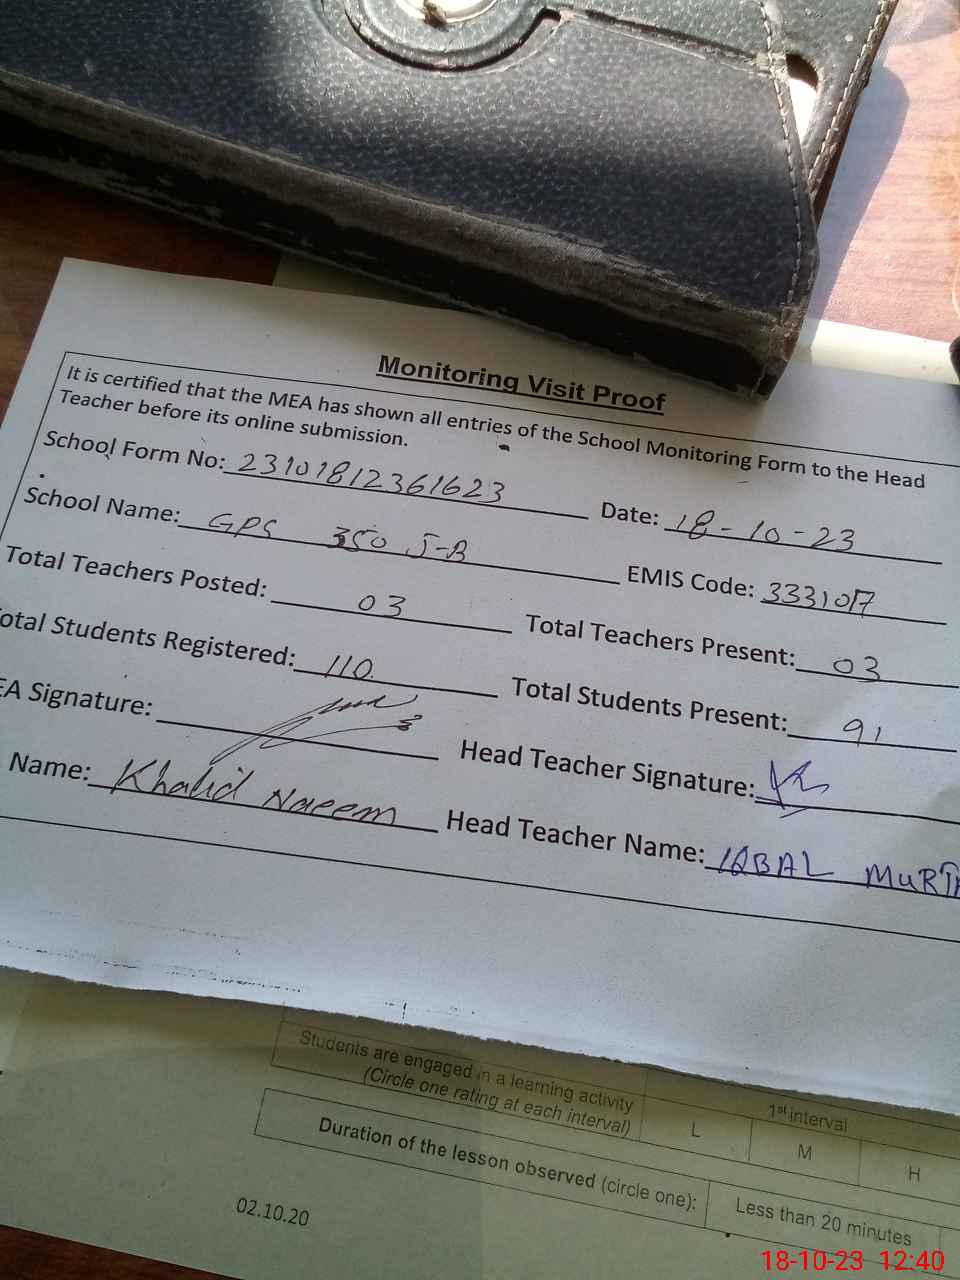 Monitoring Visit Proof
It is certified that the MEA has shown all entries of the School Monitoring Form to the Head
Teacher before its online submission.
School Form No: 23101812361623 Date: 18-10-23
School Name: GPS 350 J-B EMIS Code: 3331017
Total Teachers Posted: 03 Total Teachers Present: 03
otal Students Registered: 110 Total Students Present: 91
EA Signature: Head Teacher Signature:
Name: Khalid Naeem Head Teacher Name: IQBAL MURT
Students are engaged in a learning activity
(Circle one rating at each interval)
1st interval
L M H
Duration of the lesson observed (circle one): Less than 20 minutes
02.10.20
18-10-23 12:40